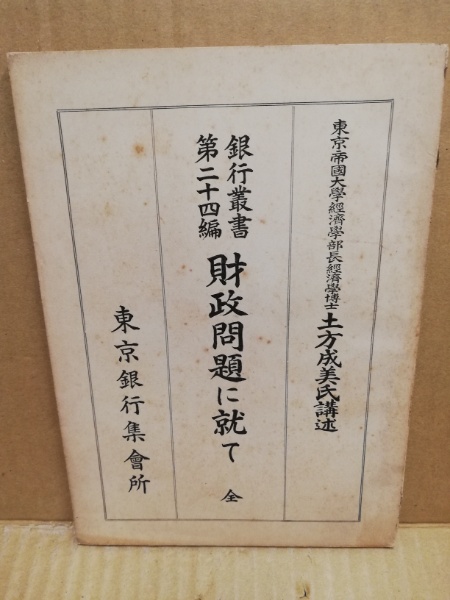 東京帝國大學經濟學部長經濟學博士 土方成美氏講述
銀行叢書
第二十四編
財政問題に就て 全
東京銀行集會所